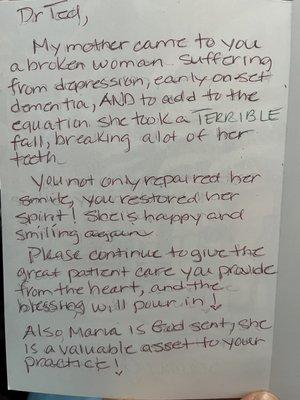 Dr Ted,
My mother came to you
a broken woman suffering
from depression, early on-set
dementia, AND to add to the
equation she took a TERRIBLE
fall, breaking a lot of her
teeth
You not only repaired her
smile, you restored her
spirit! She is happy and
smiling again
Please continue to give the
great patient care you provide
from the heart, and the
blessing will pour in!
Also Maria is God sent, she
is a valuable asset to your
practice!